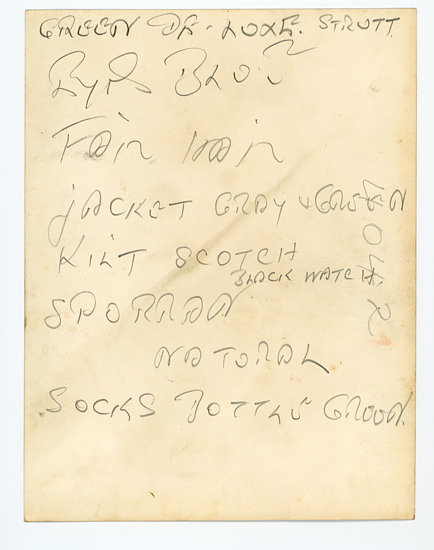 GREEN DE-LUXE. STRUTT
Eyes BLUE
FAIR HAIR
JACKET GRAY & GREEN
KILT SCOTCH
BLACK WATCH.
SPORRAN
NATURAL
SOCKS BOTTLE GREEN.